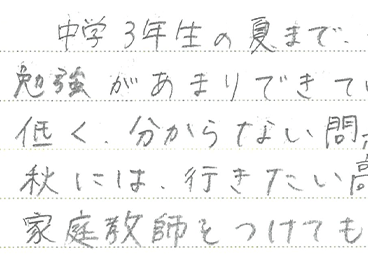 中学3年生の夏まで、
勉強があまりできてい
低く、分からない問
秋には、行きたい高
家庭教師をつけても